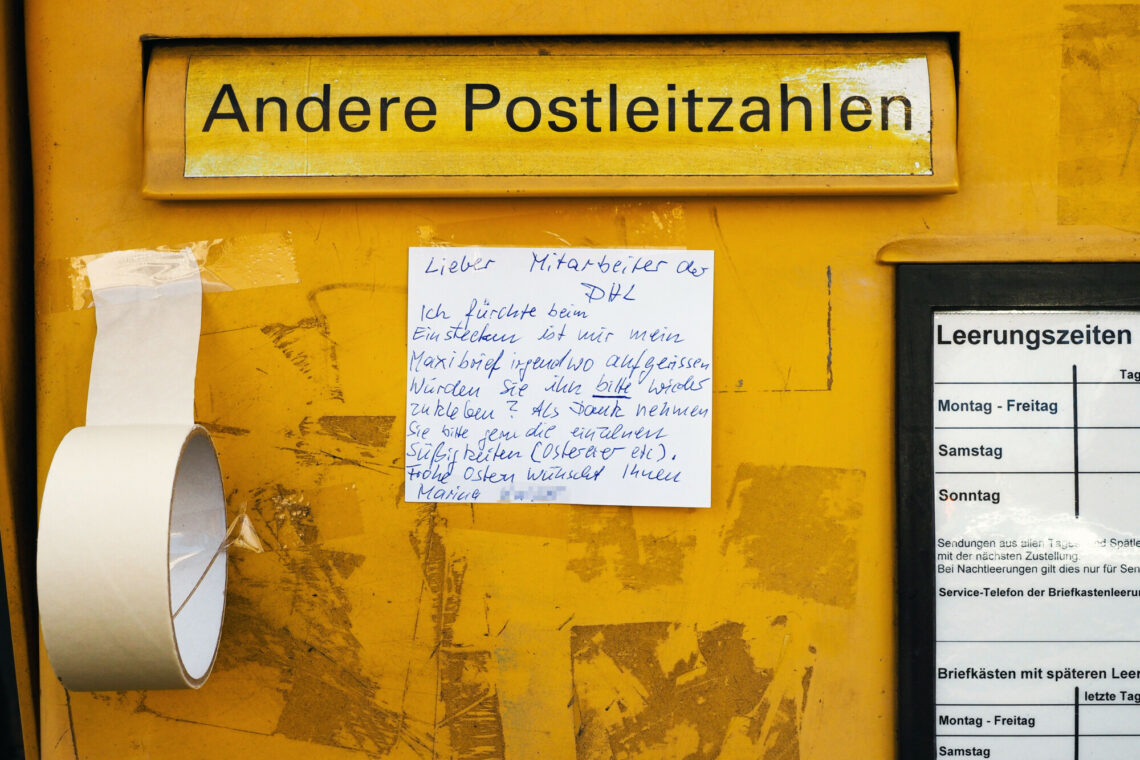 Andere Postleitzahlen
Lieber Mitarbeiter der
DHL
Ich fürchte beim
Einstecken ist mir mein
Maxibrief irgendwo aufgerissen
Würden Sie ihn bitte wieder
zukleben? Als Dank nehmen
Sie bitte gern die einzelnen
Süßigkeiten (Ostereier etc).
Frohe Ostern wünscht Ihnen
Marina
Leerungszeiten
Tag
Montag - Freitag
Samstag
Sonntag
Sendungen aus allen Tages und Spätle
mit der nächsten Zustellung.
Bei Nachtleerungen gilt dies nur für Sen
Service-Telefon der Briefkastenleeru
Briefkästen mit späteren Leer
letzte Tag
Montag - Freitag
Samstag